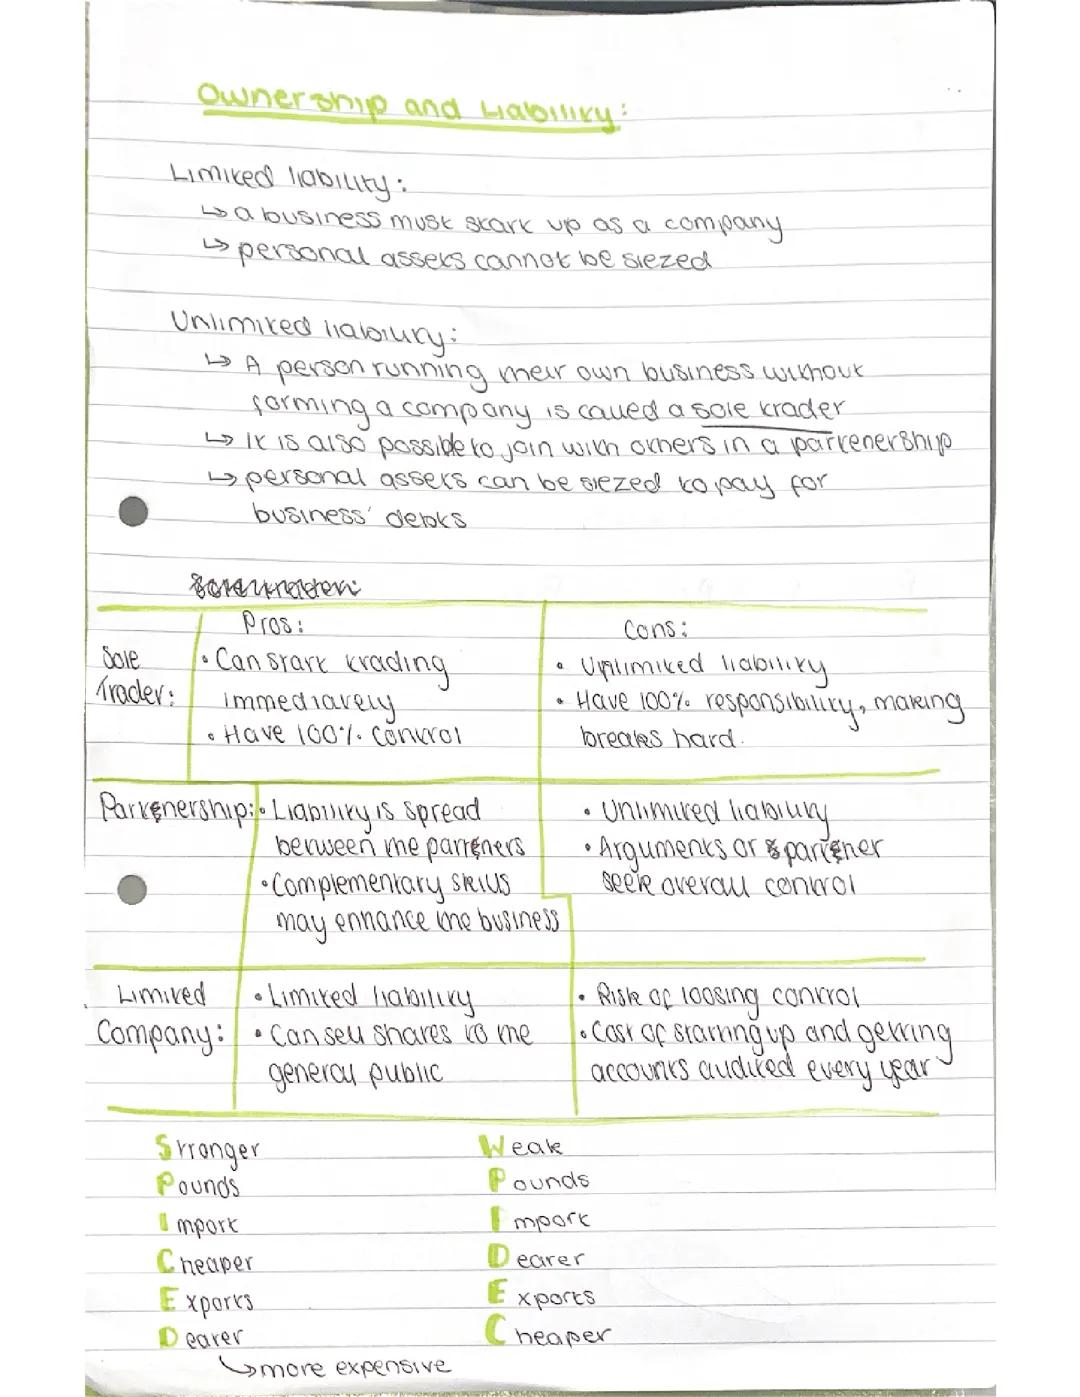 Ownership and Liability:
Limited liability:
↳ a business must start up as a company
↳ personal assets cannot be siezed
Unlimited liability:
↳ A person running their own business without
forming a company is called a sole trader
↳ It is also possible to join with others in a partenership
↳ personal assets can be siezed to pay for
business' debts
Pros:
Cons:
Sole Trader:
• Can start trading
immediately
• Have 100% control
• Unlimited liability
• Have 100% responsibility, making
breaks hard.
Partenership:
• Liability is spread
between the parteners
• Complementary skills
may enhance the business
• Unlimited liability
• Arguments or partener
seek overall control
Limited
Company:
• Limited liability
• Can sell shares to the
general public
• Risk of loosing control
• Cost of starting up and getting
accounts audited every year
Stronger
Pounds
Import
Cheaper
Exports
Dearer
↳ more expensive
Weak
Pounds
Import
Dearer
Exports
Cheaper